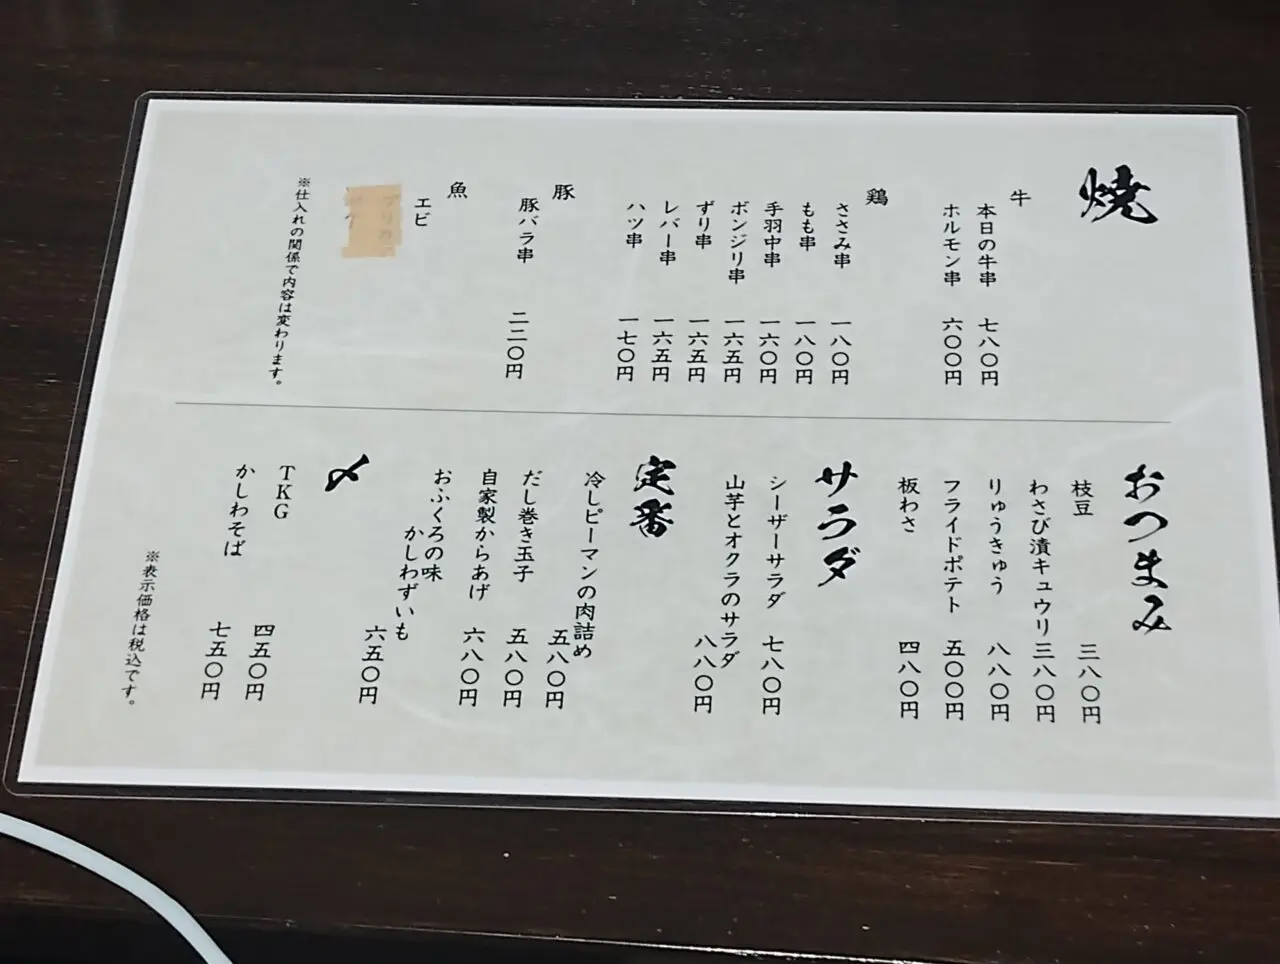 焼
牛
本日の牛串 七八〇円
ホルモン串 六〇〇円
鶏
ささみ串 一八〇円
もも串 一八〇円
手羽中串 一六〇円
ボンジリ串 一六五円
ずり串 一六五円
レバー串 一六五円
ハツ串 一七〇円
豚
豚バラ串 二二〇円
魚
エビ
※仕入れの関係で内容は変わります。
おつまみ
枝豆 三八〇円
わさび漬キュウリ 三八〇円
りゅうきゅう 八八〇円
フライドポテト 五〇〇円
板わさ 四八〇円
サラダ
シーザーサラダ 七八〇円
山芋とオクラのサラダ
八八〇円
定番
冷しピーマンの肉詰め
五八〇円
だし巻き玉子 五八〇円
自家製からあげ 六八〇円
おふくろの味
かしわずいも
六五〇円
〆
TKG 四五〇円
かしわそば 七五〇円
※表示価格は税込です。